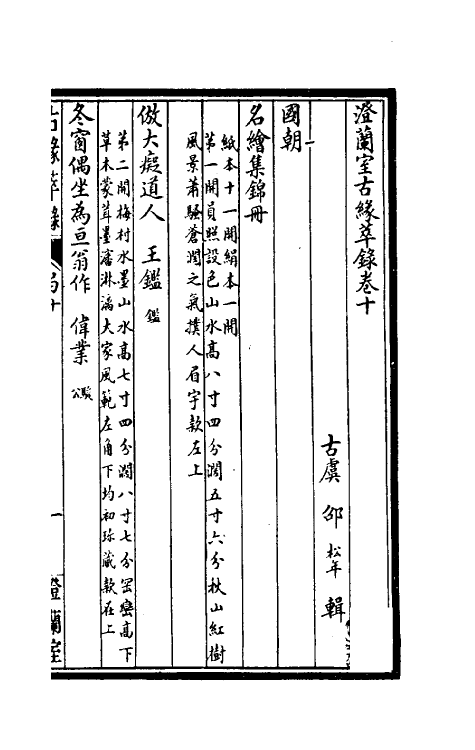 澄蘭室古緣萃錄卷十
古虞 邵 松年 輯
國朝
名繪集錦冊
紙本十一開絹本一開
第一開員照設色山水高八寸四分濶五寸六分秋山紅樹
風景蕭騷蒼潤之氣撲人眉宇款左上
倣大癡道人 王鑑 鑑
第二開梅村水墨山水高七寸四分濶八寸七分罡巒高下
草木蒙茸墨瀋淋漓大家風範左角下均初珍藏款在上
冬窗偶坐為亘翁作 偉業
古緣萃錄 卷十 一 澄蘭室